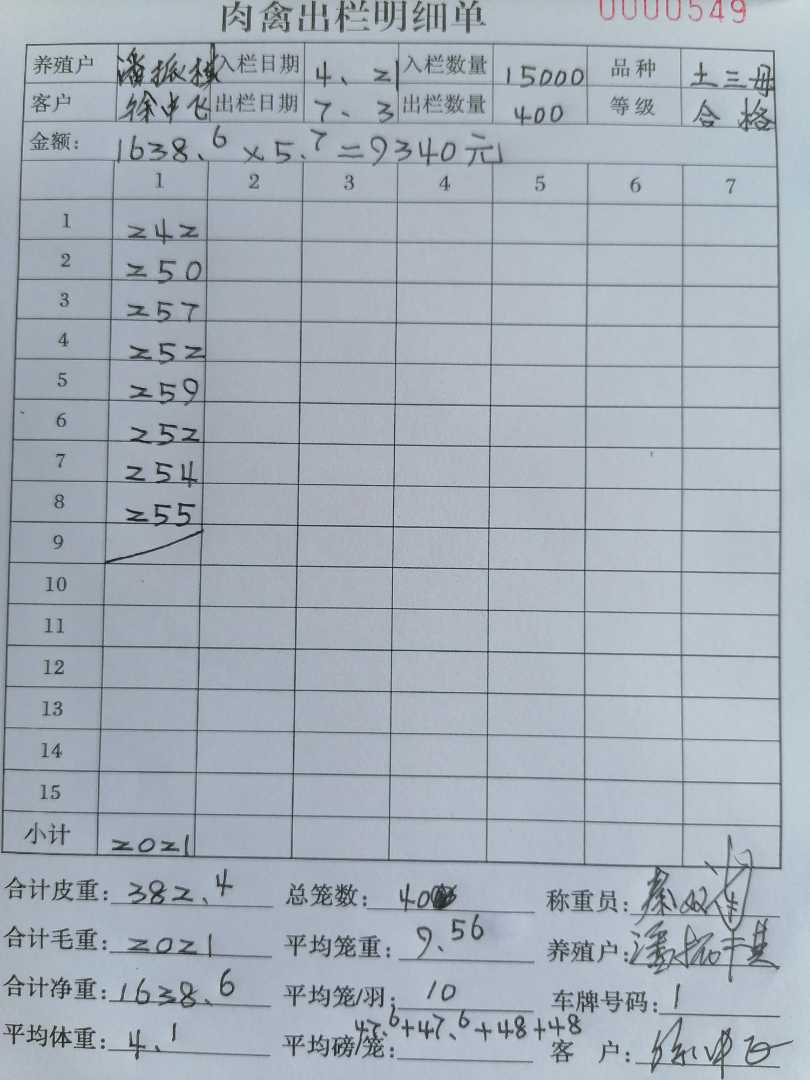 肉禽出栏明细单 0000549
养殖户 潘振棋 入栏日期 4、21 入栏数量 15000 品种 土三母
客户 徐中飞 出栏日期 7、3 出栏数量 400 等级 合格
金额: 1638.6×5.7=9340元
1 2 3 4 5 6 7
1 242
2 250
3 257
4 252
5 259
6 252
7 254
8 255
9
10
11
12
13
14
15
小计 2021
合计皮重: 382.4 总笼数: 40 称重员:
合计毛重: 2021 平均笼重: 9.56 养殖户: 潘振棋
合计净重: 1638.6 平均笼/羽: 10 车牌号码: 1
平均体重: 4.1 平均磅/笼: 47.6+47.6+48+48 客 户: 徐中飞